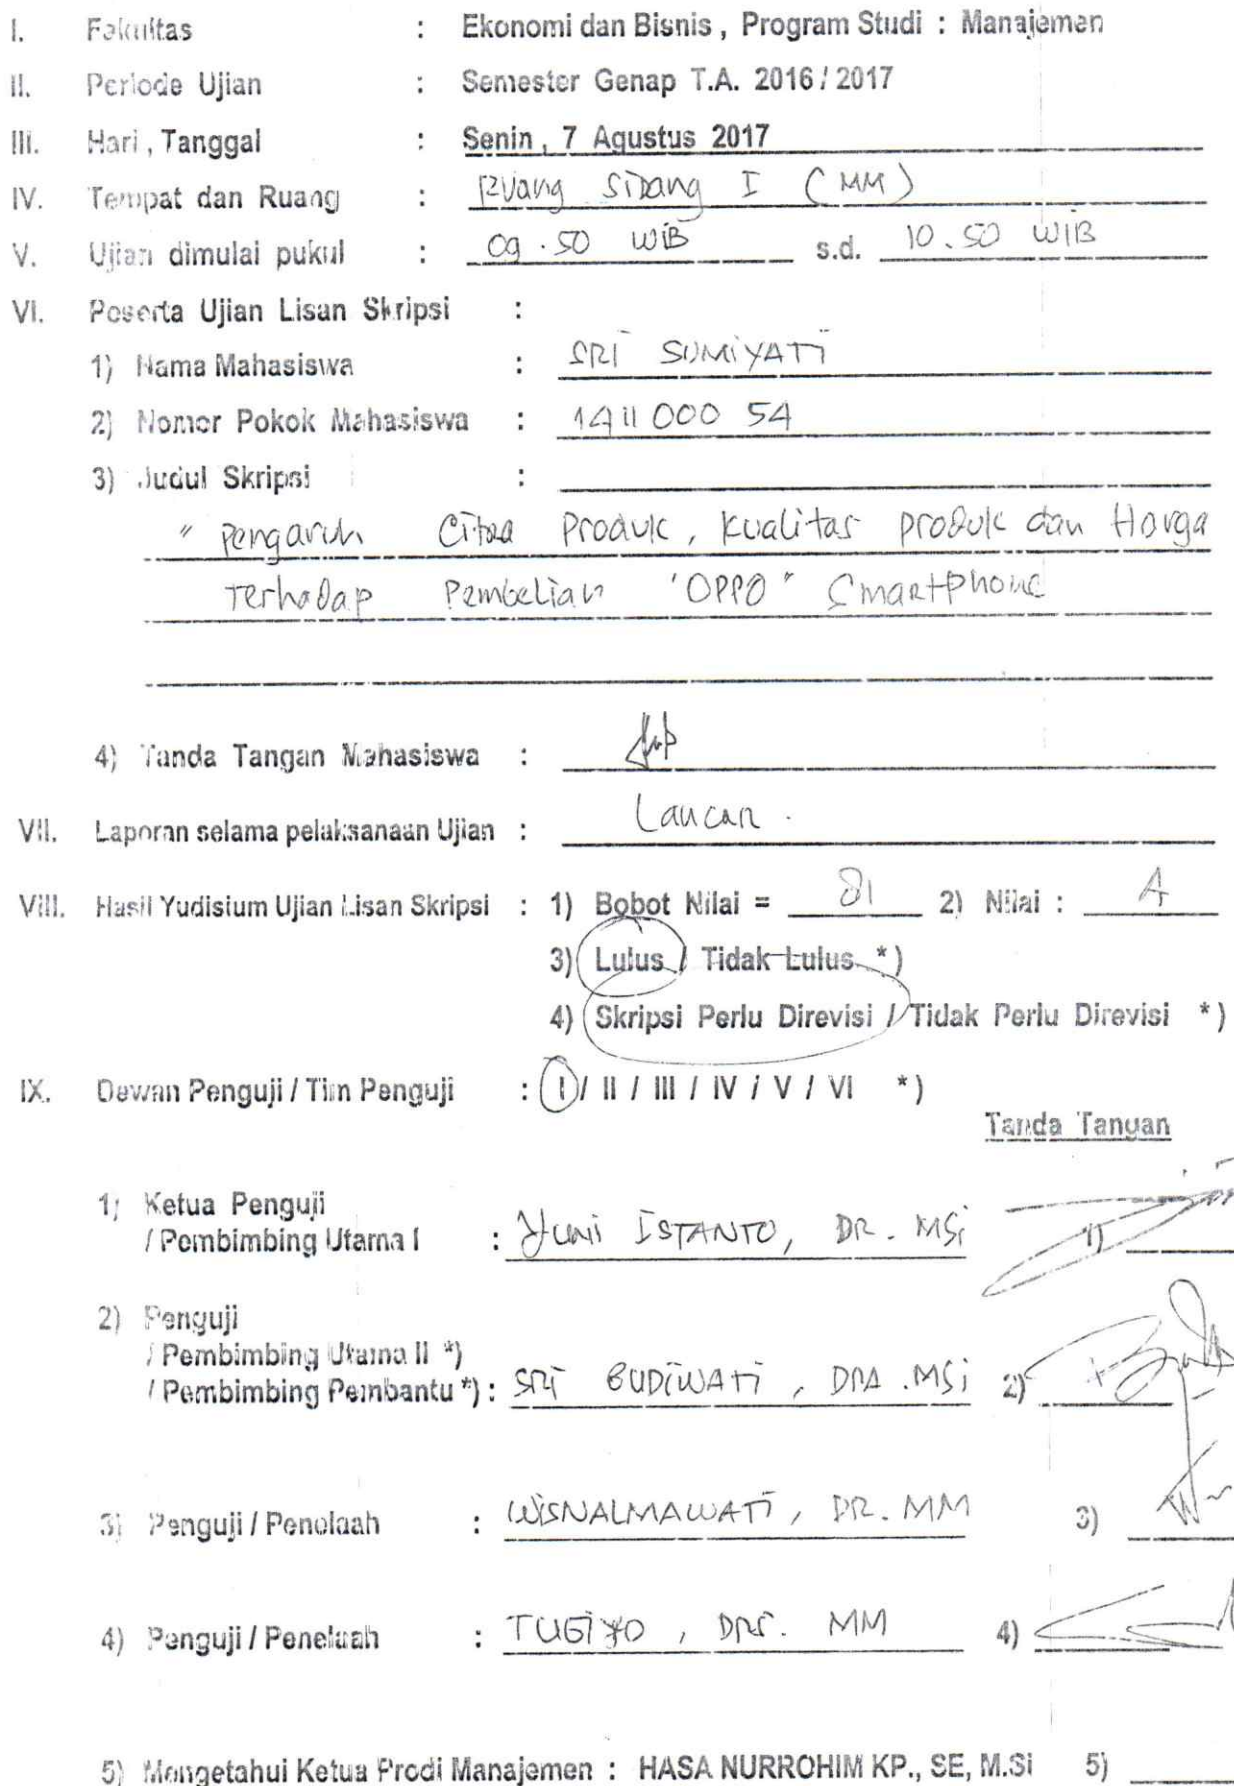 I. Fakultas : Ekonomi dan Bisnis , Program Studi : Manajemen
II. Periode Ujian : Semester Genap T.A. 2016 / 2017
III. Hari , Tanggal : Senin , 7 Agustus 2017
IV. Tempat dan Ruang : Ruang Sidang I (MM)
V. Ujian dimulai pukul : 09.50 WIB s.d. 10.50 WIB
VI. Peserta Ujian Lisan Skripsi :
1) Nama Mahasiswa : SRI SUMIYATI
2) Nomor Pokok Mahasiswa : 1411 000 54
3) Judul Skripsi :
" Pengaruh Citra Produk, Kualitas Produk dan Harga
Terhadap Pembelian 'OPPO" Smartphone
4) Tanda Tangan Mahasiswa :
VII. Laporan selama pelaksanaan Ujian : Lancar.
VIII. Hasil Yudisium Ujian Lisan Skripsi : 1) Bobot Nilai = 81 2) Nilai : A
3) Lulus / Tidak Lulus *)
4) Skripsi Perlu Direvisi / Tidak Perlu Direvisi *)
IX. Dewan Penguji / Tim Penguji : I / II / III / IV / V / VI *)
Tanda Tangan
1) Ketua Penguji
/ Pembimbing Utama I : YUNI ISTANTO, DR. MSi 1)
2) Penguji
/ Pembimbing Utama II *)
/ Pembimbing Pembantu *) : SRI BUDIWATI, DRA. MSi 2)
3) Penguji / Penelaah : WISNALMAWATI, DR. MM 3)
4) Penguji / Penelaah : TUGIYO, DRS. MM 4)
5) Mengetahui Ketua Prodi Manajemen : HASA NURROHIM KP., SE, M.Si 5)